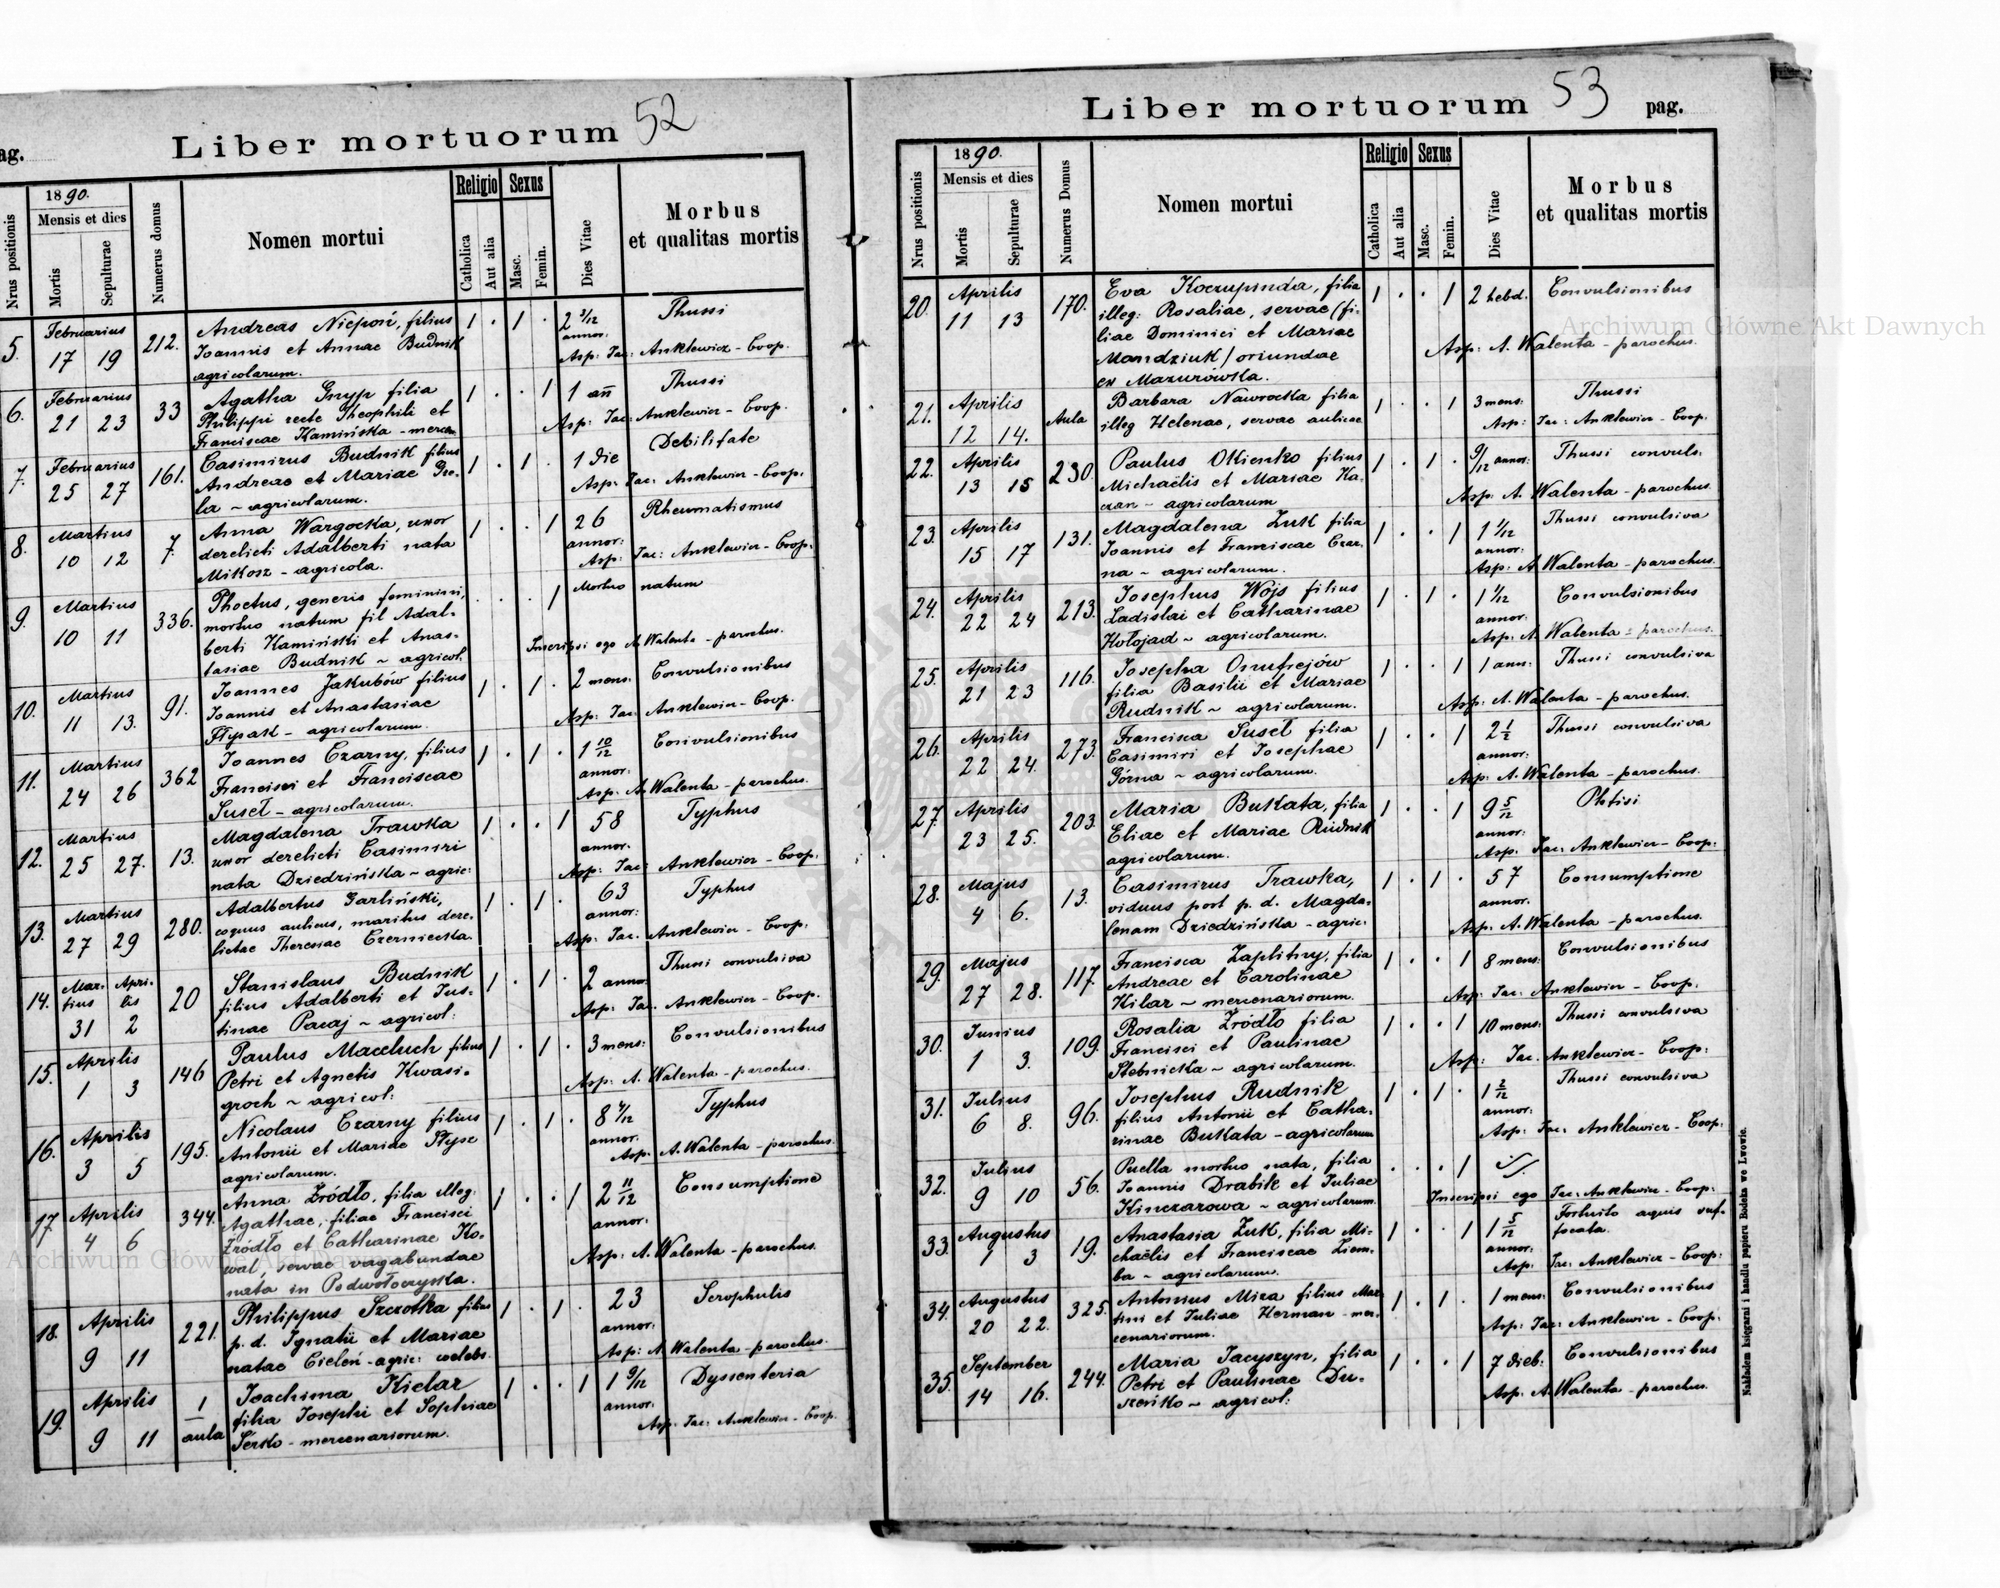 ag.
Liber mortuorum
52
Nrus positionis
1890.
Mensis et dies
Mortis
Sepulturae
Numerus domus
Nomen mortui
Religio
Catholica
Aut alia
Sexus
Masc.
Femin.
Dies Vitae
Morbus
et qualitas mortis
5. Februarius 17 19 212. Andreas Niepoń, filius 1 . 1 . 2 3/12 annor. Thussi
Joannis et Annae Budnik
agricolarum. Asp: Jac: Anklewicz - Coop.
6. Februarius 21 23 33 Agatha Gnyp filia 1 . . 1 1 an̄ Thussi
Philippi recte Theophili et
Franciscae Kamińska - mercen Asp: Jac: Anklewicz - Coop.
7. Februarius 25 27 161. Casimirus Budnik filius 1 . 1 . 1 die Debilitate
Andreae et Mariae Gro-
la ~ agricolarum. Asp: Jac: Anklewicz - Coop.
8. Martius 10 12 7. Anna Wargocka, uxor 1 . . 1 26 annor: Rheumatismus
derelicti Adalberti nata
Mikosz - agricola. Asp: Jac: Anklewicz - Coop.
9. Martius 10 11 336. Phoetus, generis feminini, . . . 1 Mortuo natum
mortuo natum fil Adal-
berti Kamiński et Anas-
tasiae Budnik ~ agricol. Inscripsi ego A. Walenta - parochus.
10. Martius 11 13. 91. Joannes Jakubów filius 1 . 1 . 2 mens. Convulsionibus
Joannis et Anastasiae
Słysak - agricolarum. Asp: Jac: Anklewicz - Coop.
11. Martius 24 26 362 Joannes Czarny, filius 1 . 1 . 1 10/12 annor: Convulsionibus
Francisci et Franciscae
Suseł - agricolarum. Asp: A. Walenta - parochus.
12. Martius 25 27. 13. Magdalena Trawka 1 . . 1 58 annor. Typhus
uxor derelicti Casimiri
nata Dziedzińska ~ agric: Asp: Jac: Anklewicz - Coop.
13. Martius 27 29 280. Adalbertus Garliński, 1 . 1 . 63 annor: Typhus
coquus aulicus, maritus dere-
lictae Theresiae Czerniecka. Asp: Jac: Anklewicz - Coop.
14. Martius 31 Aprilis 2 20 Stanislaus Budnik 1 . 1 . 2 annor Thussi convulsiva
filius Adalberti et Jus-
tinae Pacaj ~ agricol: Asp: Jac. Anklewicz - Coop.
15. Aprilis 1 3 146 Paulus Maceluch filius 1 . 1 . 3 mens: Convulsionibus
Petri et Agnetis Kwasi-
groch ~ agricol: Asp: A. Walenta - parochus.
16. Aprilis 3 5 195. Nicolaus Czarny filius 1 . 1 . 8 4/12 annor. Typhus
Antonii et Mariae Słysz
agricolarum. Asp. A. Walenta - parochus.
17 Aprilis 4 6 344. Anna Źródło, filia illeg: 1 . . 1 2 11/12 annor. Consumptione
Agathae, filiae Francisci
Źródło et Catharinae Ko-
wal, servae vagabundae
nata in Podwołoczyska. Asp: A. Walenta - parochus.
18. Aprilis 9 11 221. Philippus Szczotka filius 1 . 1 . 23 annor: Scrophulis
p. d. Ignatii et Mariae
natae Cieleń - agric: coelebs. Asp: A. Walenta - parochus.
19. Aprilis 9 11 1 aula Joachima Kielar 1 . . 1 1 9/12 annor: Dyssenteria
filia Josephi et Sophiae
Serko - mercenariorum. Asp: Jac: Anklewicz - Coop.
Liber mortuorum
53
pag.
Nrus positionis
1890.
Mensis et dies
Mortis
Sepulturae
Numerus Domus
Nomen mortui
Religio
Catholica
Aut alia
Sexus
Masc.
Femin.
Dies Vitae
Morbus
et qualitas mortis
20. Aprilis 11 13 170. Eva Koczupinda, filia 1 . . 1 2 hebd. Convulsionibus
illeg: Rosaliae, servae (fi-
liae Dominici et Mariae
Mandziuk) oriundae
ex Mazurówka. Asp: A. Walenta - parochus.
21. Aprilis 12 14. Aula Barbara Nawrocka filia 1 . . 1 3 mens: Thussi
illeg Helenae, servae aulicae Asp: Jac: Anklewicz - Coop.
22. Aprilis 13 15 230. Paulus Okienko filius 1 . 1 . 9/12 annor: Thussi convuls:
Michaëlis et Mariae Ka-
czan - agricolarum Asp: A. Walenta - parochus.
23. Aprilis 15 17 131. Magdalena Żuk filia 1 . . 1 1 1/12 annor: Thussi convulsiva
Joannis et Franciscae Czar-
na ~ agricolarum. Asp: A. Walenta - parochus.
24. Aprilis 22 24 213. Josephus Wójs filius 1 . 1 . 1 1/12 annor: Convulsionibus
Ladislai et Catharinae
Kołojad ~ agricolarum. Asp: A. Walenta - parochus.
25. Aprilis 21 23 116. Josepha Onufrejów 1 . . 1 1 ann: Thussi convulsiva
filia Basilii et Mariae
Rudnik ~ agricolarum. Asp: A. Walenta - parochus.
26. Aprilis 22 24. 273. Francisca Suseł filia 1 . . 1 2 1/2 annor: Thussi convulsiva
Casimiri et Josephae
Górna ~ agricolarum. Asp: A. Walenta - parochus.
27. Aprilis 23 25. 203. Maria Bukata, filia 1 . . 1 9 5/12 annor: Phtisi
Eliae et Mariae Rudnik
agricolarum. Asp: Jac: Anklewicz - Coop:
28. Majus 4 6. 13. Casimirus Trawka, 1 . 1 . 57 annor. Consumptione
viduus post p. d. Magda-
lenam Dziedzińska ~ agric: Asp: A. Walenta - parochus.
29. Majus 27 28. 117. Francisca Zaplitny, filia 1 . . 1 8 mens: Convulsionibus
Andreae et Carolinae
Kilar ~ mercenariorum. Asp: Jac: Anklewicz - Coop.
30. Junius 1 3. 109. Rosalia Źródło filia 1 . . 1 10 mens: Thussi convulsiva
Francisci et Paulinae
Stebnicka ~ agricolarum. Asp: Jac. Anklewicz - Coop:
31. Julius 6 8. 96. Josephus Rudnik 1 . 1 . 1 2/12 annor: Thussi convulsiva
filius Antonii et Catha-
rinae Bukata - agricolarum Asp: Jac: Anklewicz - Coop:
32. Julius 9 10 56. Puella mortuo nata, filia . . . 1
Joannis Drabik et Juliae
Kinczarowa ~ agricolarum. Inscripsi ego Jac: Anklewicz - Coop:
33. Augustus 1 3 19. Anastasia Żuk, filia Mi- 1 . . 1 1 5/12 annor: Fortuito aquis suf-
chaëlis et Franciscae Ziem- focata.
ba ~ agricolarum. Asp: Jac: Anklewicz - Coop:
34. Augustus 20 22. 325. Antonius Miza filius Mar- 1 . 1 . 1 mens: Convulsionibus
tini et Juliae Herman - mer-
cenariorum. Asp: Jac: Anklewicz - Coop.
35. September 14 16. 244. Maria Jacyszyn, filia 1 . . 1 7 dieb: Convulsionibus
Petri et Paulinae Du-
szeńko ~ agricol: Asp: A. Walenta - parochus.
Nakładem księgarni i handlu papieru Bodeka we Lwowie.
Archiwum Główne Akt Dawnych
Archiwum Główne Akt Dawnych